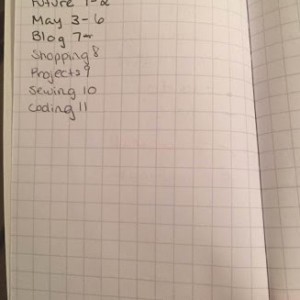 Future 1-2
May 3-6
Blog 7-
Shopping 8
Projects 9
Sewing 10
Coding 11